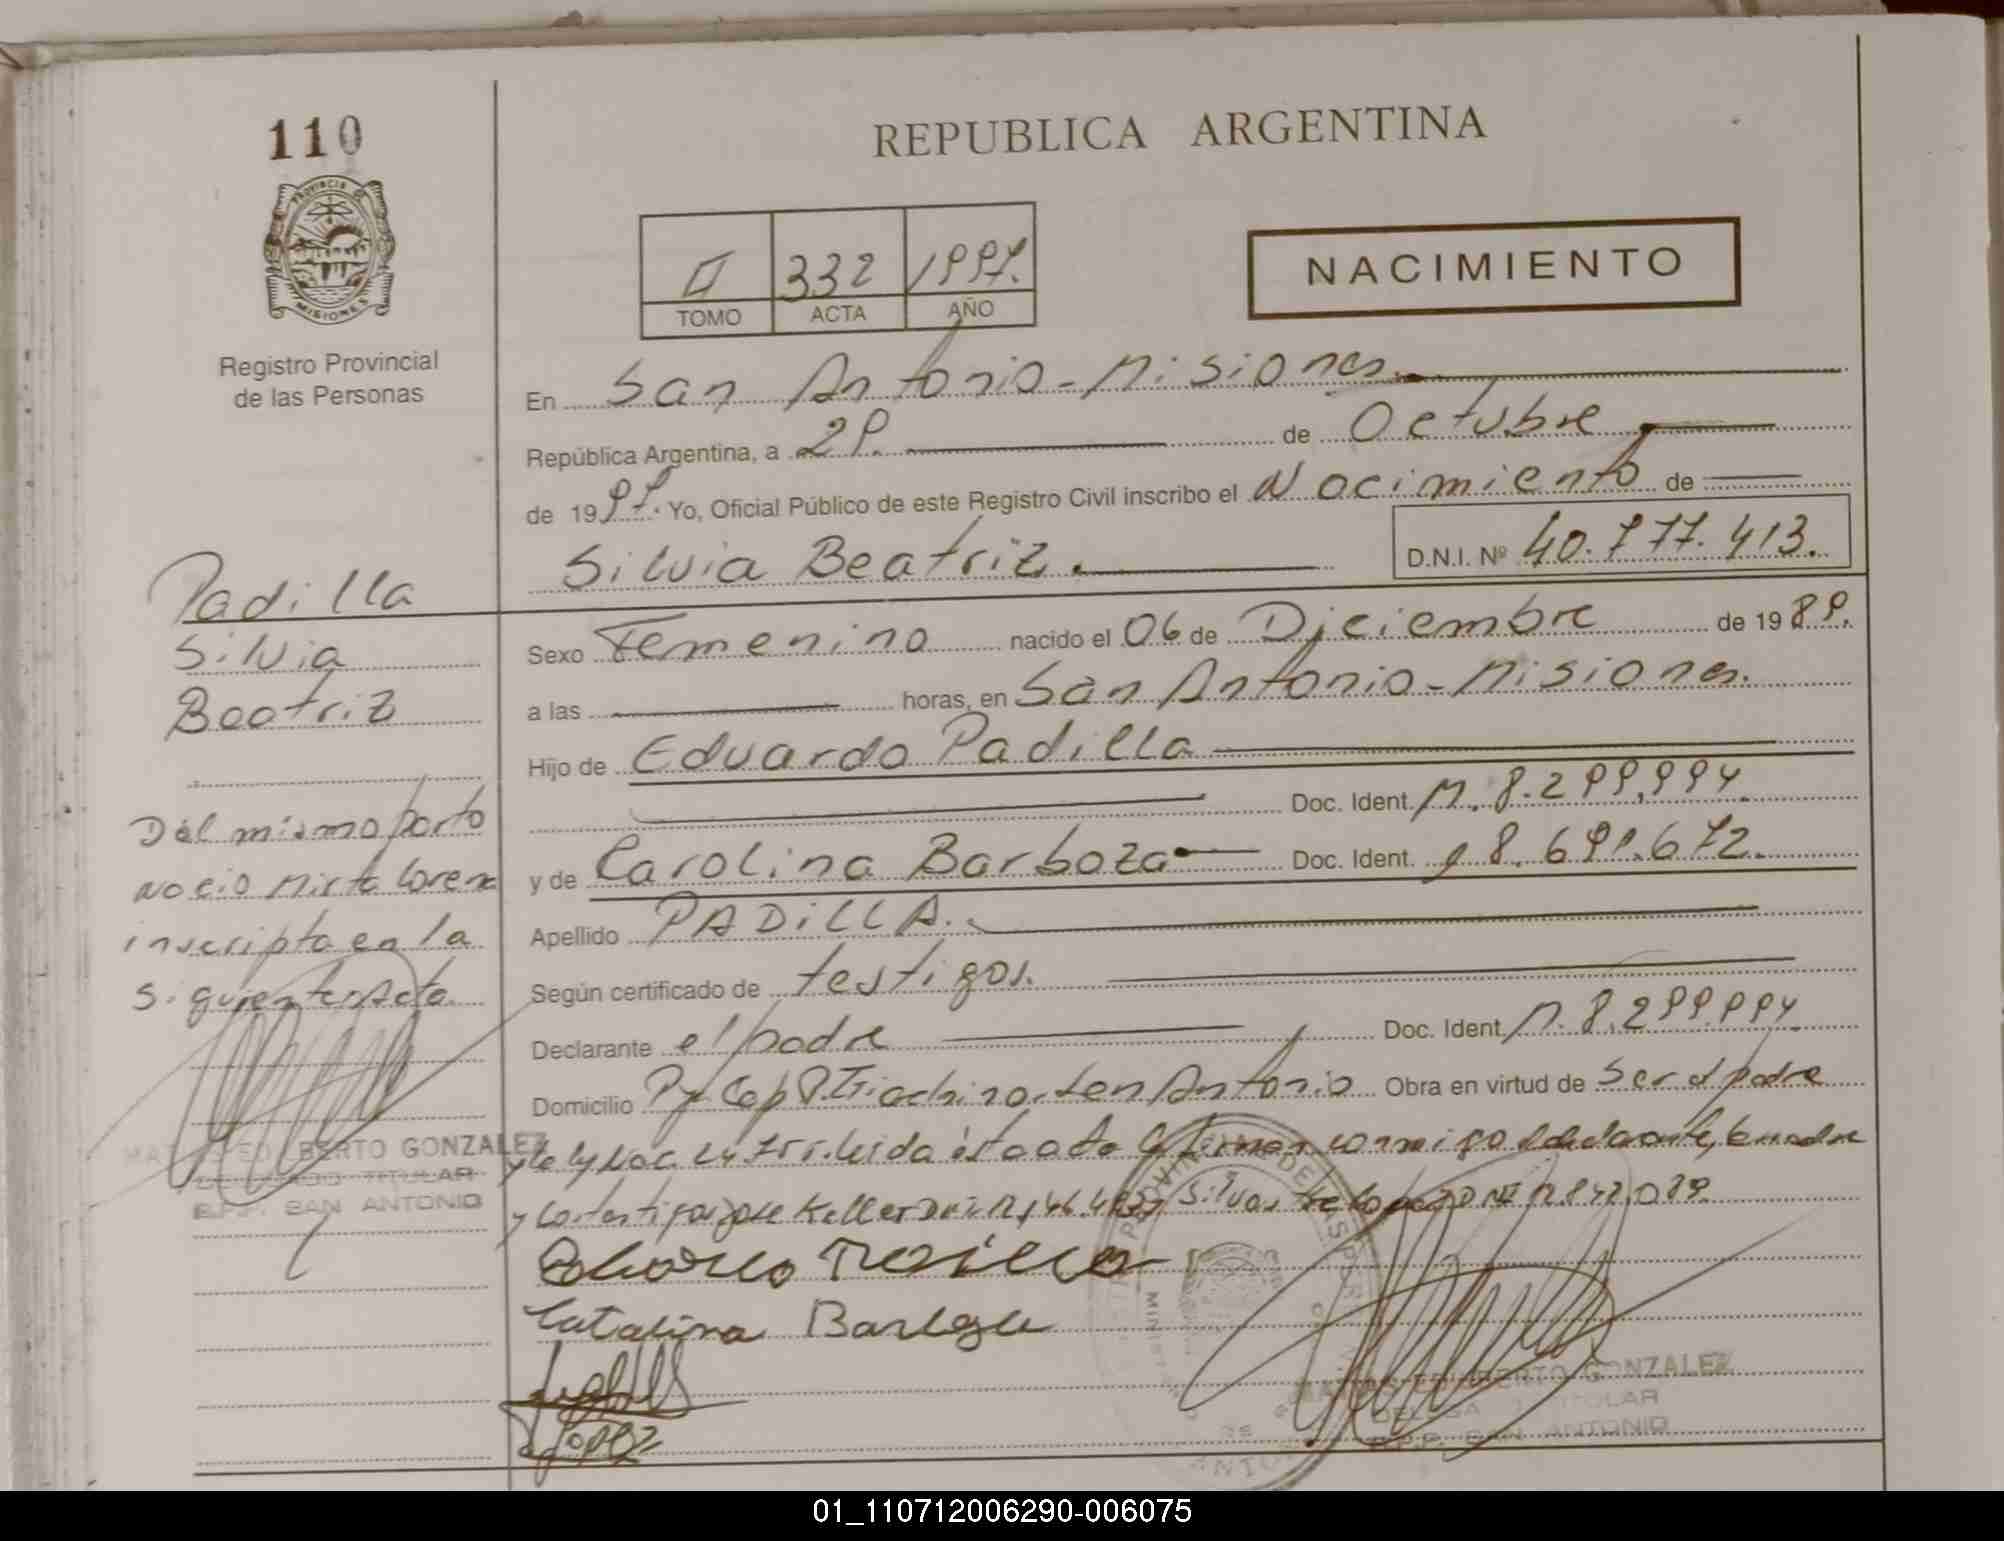 110
PROVINCIA
MISIONES
Registro Provincial
de las Personas
REPUBLICA ARGENTINA
II 332 1997.
TOMO ACTA AÑO
NACIMIENTO
En San Antonio - Misiones.
República Argentina, a 29. de Octubre
de 1997. Yo, Oficial Público de este Registro Civil inscribo el Nacimiento de
Silvia Beatriz.
D.N.I. Nº 40.777.413.
Padilla
Silvia
Beatriz
Del mismo parto
nacio Mirta Lorena
inscripta en la
siguiente Acta
Sexo Femenino nacido el 06 de Diciembre de 1989.
a las horas, en San Antonio - Misiones.
Hijo de Eduardo Padilla
Doc. Ident. M. 8.299.994.
y de Carolina Barboza Doc. Ident. 18.691.672.
Apellido PADILLA.
Según certificado de testigos.
Declarante el padre Doc. Ident. M. 8.299.994
Domicilio Cap San Antonio Obra en virtud de ser el padre
y Ley Leida esta acta la firman conmigo
y los testigos Jose Keller Silvestre Lopez DNI 12.842.089.
Catalina
Lopez
MATIAS EDILBERTO GONZALEZ
DELEGADO TITULAR
R.P.P. SAN ANTONIO
MATIAS EDILBERTO GONZALEZ
DELEGADO TITULAR
R.P.P. SAN ANTONIO
01_110712006290-006075